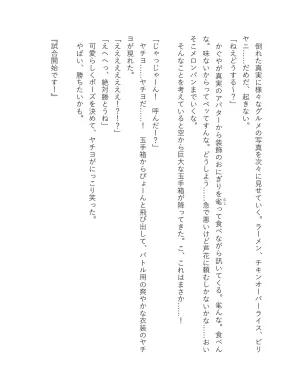 倒れた真実に様々なグルメの写真を次々に見せていく。ラーメン、チキンオーバーライス、ビリ
ヤニ……だめだ、起きない。
「ねえどうする～？」
　かぐやが真実のアバターから装飾のおにぎりを毟って食べながら訊いてくる。毟んな。食べん
な。味ないからってペッてすんな。どうしよう……急で悪いけど芦花に頼むしかないかな……おい
そこメロンパンまでいくな。
　そんなことを考えていると空から巨大な玉手箱が降ってきた。こ、これはまさか……！
「じゃっじゃーん！　呼んだー？」
　ヤチヨ……ヤチヨだ……！　玉手箱からぴょーんと飛び出して、バトル用の爽やかな衣装のヤチ
ヨが現れた。
「ええええええええ！？！？」
「えへへっ、絶対勝とうね」
　可愛らしくポーズを決めて、ヤチヨがにっこり笑った。
　やばい、勝ちたいかも。
『試合開始です！』